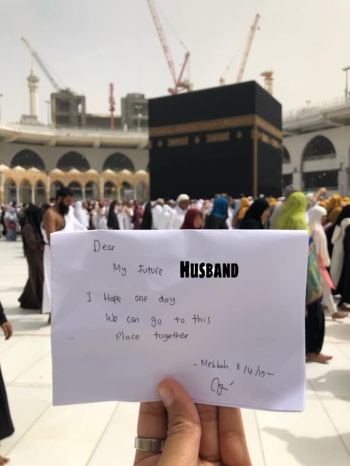 Dear
My future HUSBAND
I Hope one day
We can go to this
place together
- Mekkah, 8/4/19 -